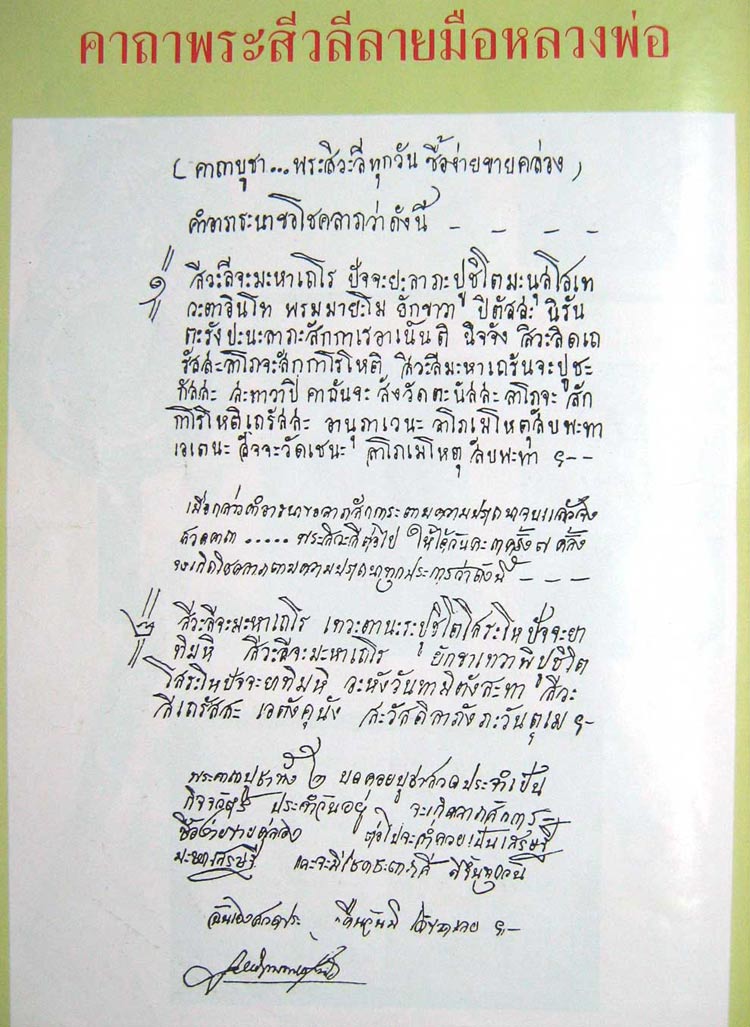 คาถาพระสีวลีลายมือหลวงพ่อ
(คาถาบูชา...พระสีวะลีทุกวัน ซื้อง่ายขายคล่อง)
คำอาราธนาขอโชคลาภว่าดังนี้ - - - -
๑ สีวะลีจะมะหาเถโร ปัจจะยะลาภะปูชิโตมะนุสโสเท
วะตาอินโท พรมมายะโม ยักขาวา ปิตัสสะ นิรัน
ตะรังปะนะลาภะสักกาเรอาเนันติ นิจจัง สีวะลิดเถ
รัสสะลาโภจะสักกาโรโหติ สีวะลีมะหาเถรันจะปูชะ
กัสสะ สะทาวาปิ คาถันจะ สังวัดตะนัสสะ ลาโภจะ สัก
กาโรโหติเถรัสสะ อานุภาเวนะ ลาโภเมโหตุสับพะทา
เอเตนะ สัจจะวัดเชนะ ลาโภเมโหตุ สับพะทา ๚--
เมื่อกล่าวคำอาราธนาขอลาภสักการะตามความปรารถนาจบแล้วจึง
สวดคาถา ..... พระสีวะลีต่อไป ให้ได้วันละ ๓ ครั้ง ๗ ครั้ง
จะเกิดโชคลาภตามความปรารถนาทุกประการว่าดังนี้ - - - -
๒ สีวะลีจะมะหาเถโร เทวะตานะระปูชิโตโสระโหปัจจะยา
ทิมหิ สีวะลีจะมะหาเถโร ยักขาเทวาพิปูชิโต
โสระโหปัจจะยาทิมหิ อะหังวันทามิตังสะทา สีวะ
ลีเถรัสสะ เอตังคุนัง สะวัสดิลาภังภะวันตุเม ๚-
พระคาถาบูชาทั้ง ๒ บทคอยบูชาสวดประจำเป็น
กิจวัตร์ ประจำวันอยู่ จะเกิดลาภสักการะ
ซื้อง่ายขายคล่อง ต่อไปจะร่ำรวยเป็นเศรษฐี
มะหาเศรษฐี และจะมีโชคชะตาดี ดีขึ้นทุกวัน